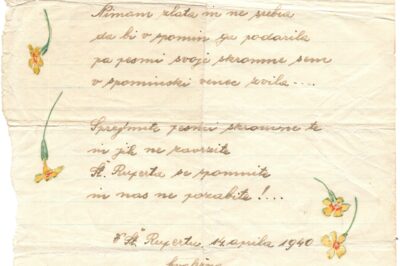 Nimam zlata in ne srebra
da bi v spomin ga podarila
pa pesmi svoje skromne sem
v spominski venec zvila....
Sprejmite pesmi skromne te
in jih ne zavrzite
Št. Ruperta se spomnite
in nas ne pozabite!...
V Št. Rupertu, 14 aprila 1940